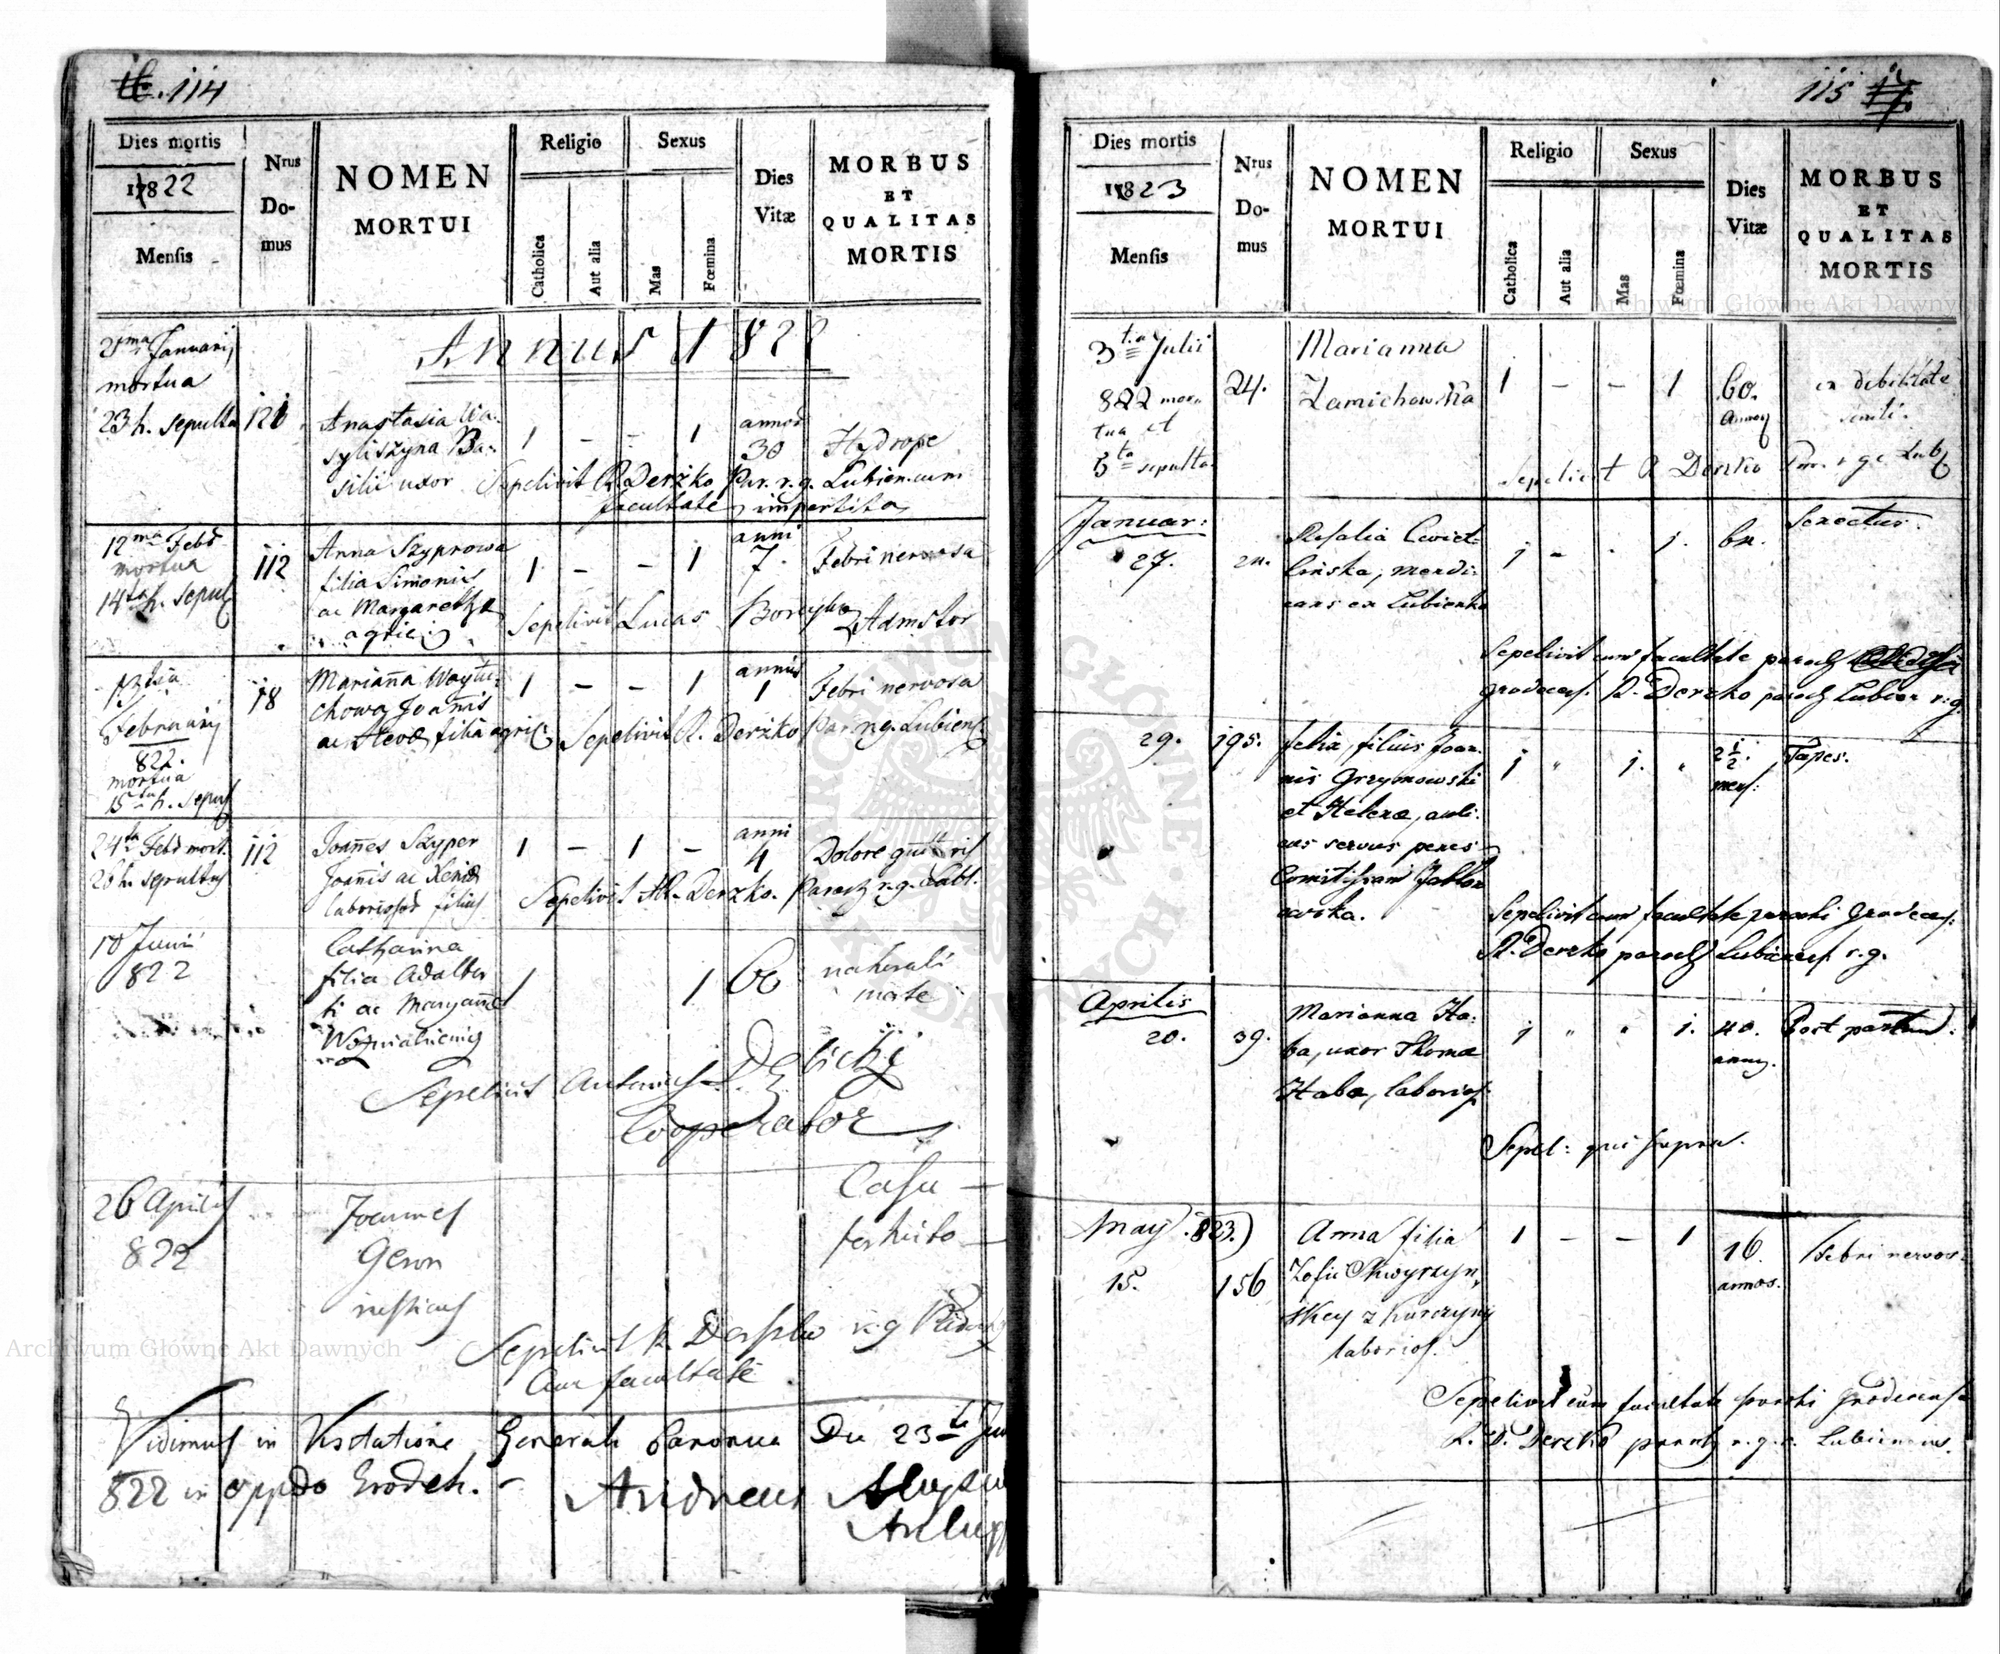 114
Dies mortis
1822
Mensis
Nrus
Do-
mus
NOMEN
MORTUI
Religio
Catholica
Aut alia
Sexus
Mas
Fœmina
Dies
Vitæ
MORBUS
ET
QUALITAS
MORTIS
Annus 1822
21ma Januarij
mortua
23 h. sepulta
120
Anastasia Wa-
syliszyna Ba-
silii uxor
1 - - 1
annor
30
Hydrope
Sepelivit R. Derzko Par. r. g. Lubien. cum
facultate impertita
12ma Febr
mortua
14ta h. sepul
112
Anna Szyprowa
filia Simonis
ac Margarethæ
agric:
1 - - 1
anni
7.
Febri nervosa
Sepelivit Lucas Admstor
13tia
Februarij
822.
mortua
15ta h. sepul
18
Marianna Woytu-
chowa Joannis
ac filia agric.
1 - - 1
annus
1
Febri nervosa
Sepelivit R. Derzko Par r. g. Lubien
24ta Febr mort.
26 h. sepultus
112
Joannes Szyper
Joannis ac Xeniæ
laboriosor filius
1 - 1 -
anni
4
Dolore gutturis
Sepelivit R. Derzko. Paroch r. g. Lubi.
10 Junii
822
Catharina
filia Adalber
ti ac Maryannæ
1 1
60
naturali
morte
Sepelivit Antonius Delicki
Cooperator
26 Aprilis
822
Joannes
Geron
rusticus
Casu
fortuito
Sepelivit R. r. g.
cum facultate
Vidimus in Visitatione Generali Canonica Die 23tia Jun
822 in oppdo Grodek. -
Andreas
115
Dies mortis
1823
Mensis
Nrus
Do-
mus
NOMEN
MORTUI
Religio
Catholica
Aut alia
Sexus
Mas
Fœmina
Dies
Vitæ
MORBUS
ET
QUALITAS
MORTIS
3tia Julii
822 mor-
tua et
5ta sepulta
24.
Marianna
Zamichowska
1 - - 1
60.
annor
ex debilitate
senili.
Sepelivit R Derzko Par. r g c Lub.
Januar:
27.
24.
Rosalia Cwiet-
linska, mendi-
cans ex Lubienka
1 - . 1.
60.
Senectus.
Sepelivit cum facultate paroch
grodecen. R. Derzko paroch Lubien r. g.
29.
195.
Felix, filius Joan-
nis Grzymowski
et Helenæ, auli-
cus servus penes
Comitissam Jablon
owska.
1 " 1. "
2 1/2.
mens:
Tapes.
Sepelivit cum facultate parochi Grodecen:
R. Derzko paroch Lubienen. r. g.
Aprilis
20.
39.
Marianna Ha-
ba, uxor Thomæ
Haba, laborios.
1 " " 1.
40.
annor.
Post partum.
Sepel: qui supra.
May .823.)
15.
156
Anna filia
Zofii Skwyrzyn-
skey z Kurczyny
laborios.
1 - - 1
16.
annos.
Febri nervos.
Sepelivit cum facultate parochi Grodecensis
R. D. Derzko paroch r. g. c. Lubienens.
Archiwum Główne Akt Dawnych
Archiwum Główne Akt Dawnych
ARCHIWUM GŁÓWNE AKT DAWNYCH